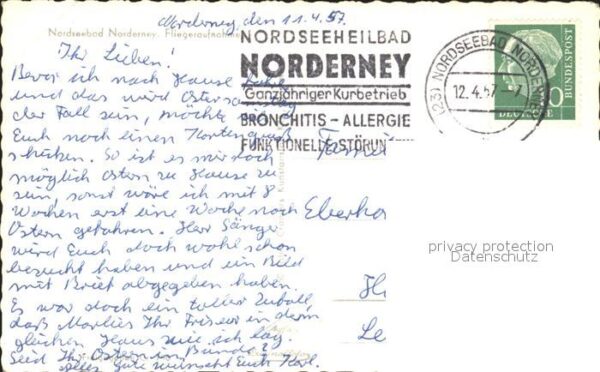 Norderney, den 11.4.57.
Nordseebad Norderney. Fliegeraufnahme
Ihr Lieben!
Bevor ich nach Hause fahre
und das wird Ostersamstag
der Fall sein, möchte ich
Euch noch einen Kartengruß
schicken. So ist es mir doch
möglich Ostern zu Hause zu
sein, sonst wäre ich mit 8
Wochen erst eine Woche nach
Ostern gefahren. Herr Sänger
wird Euch doch wohl schon
besucht haben und ein Bild
mit Brief abgegeben haben.
Es war doch ein toller Zufall,
daß Marlies Ihr Friseur in dem
gleichen Haus wie ich lag.
Seid Ihr Ostern in Bünde?
Alles Gute wünscht Euch Karl.
NORDSEEHEILBAD
NORDERNEY
Ganzjähriger Kurbetrieb
BRONCHITIS – ALLERGIE
FUNKTIONELLE STÖRUN
(23) NORDSEEBAD NORDERNEY
12.4.57
DEUTSCHE
BUNDESPOST
10
Fami
Eberha
privacy protection
Datenschutz
H
Le